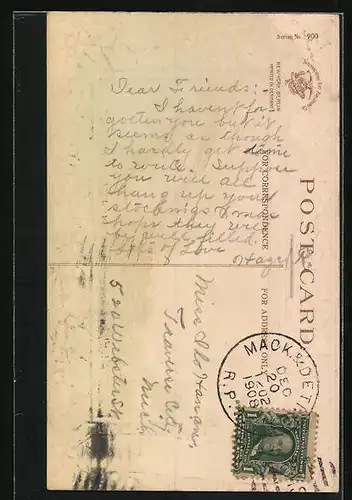 Series No. 900
Dear Friends:
I havent for
gotten you but it
seems as though
I hardly get time
to write. Suppose
you will all
hang up your
stockings Xmas
hope they will
be well filled
Lots of Love
POST CARD
FOR CORRESPONDENCE
FOR ADDRESS ONLY
Miss
Traverse City
Mich
520 Webster St
MACK. & DET.
DEC
20
1908
R.P.